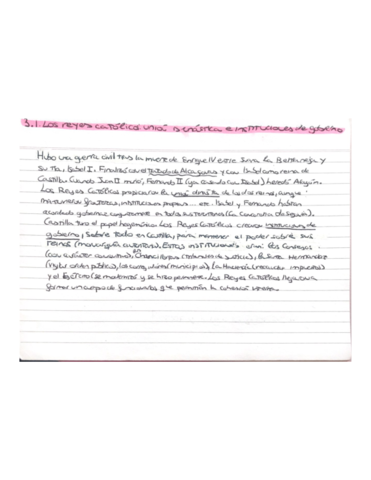 3.1 Los reyes católicos unión dinástica e instituciones de gobierno
Hubo una guerra civil tras la muerte de Enrique IV entre Juana La Beltraneja y
su tía, Isabel I. Finalizó con el Tratado de Alcaçovas y con Isabel como reina de
Castilla. Cuando Juan II murió, Fernando II (ya casado con Isabel) heredó Aragón.
Los Reyes Católicos propiciaron la unión dinástica de los dos reinos, aunque
mantuvieron fronteras, instituciones propias ... etc. Isabel y Fernando habían
acordado gobernar conjuntamente en todos sus territorios (La Concordia de Segovia).
Castilla tuvo el papel hegemónico. Los Reyes Católicos crearon instituciones de
gobierno, sobre todo en Castilla, para mantener el poder sobre sus
reinos (monarquía autoritaria). Estas instituciones eran: Los Consejos
(con carácter consultivo), las Chancillerías (tribunales de justicia), la Santa Hermandad
(vigilar orden público), los corregidores (municipios), la Hacienda (recaudar impuestos)
y el Ejército (se modernizó y se hizo permanente). Los Reyes Católicos
formar un cuerpo de funcionarios que permitían la cohesión